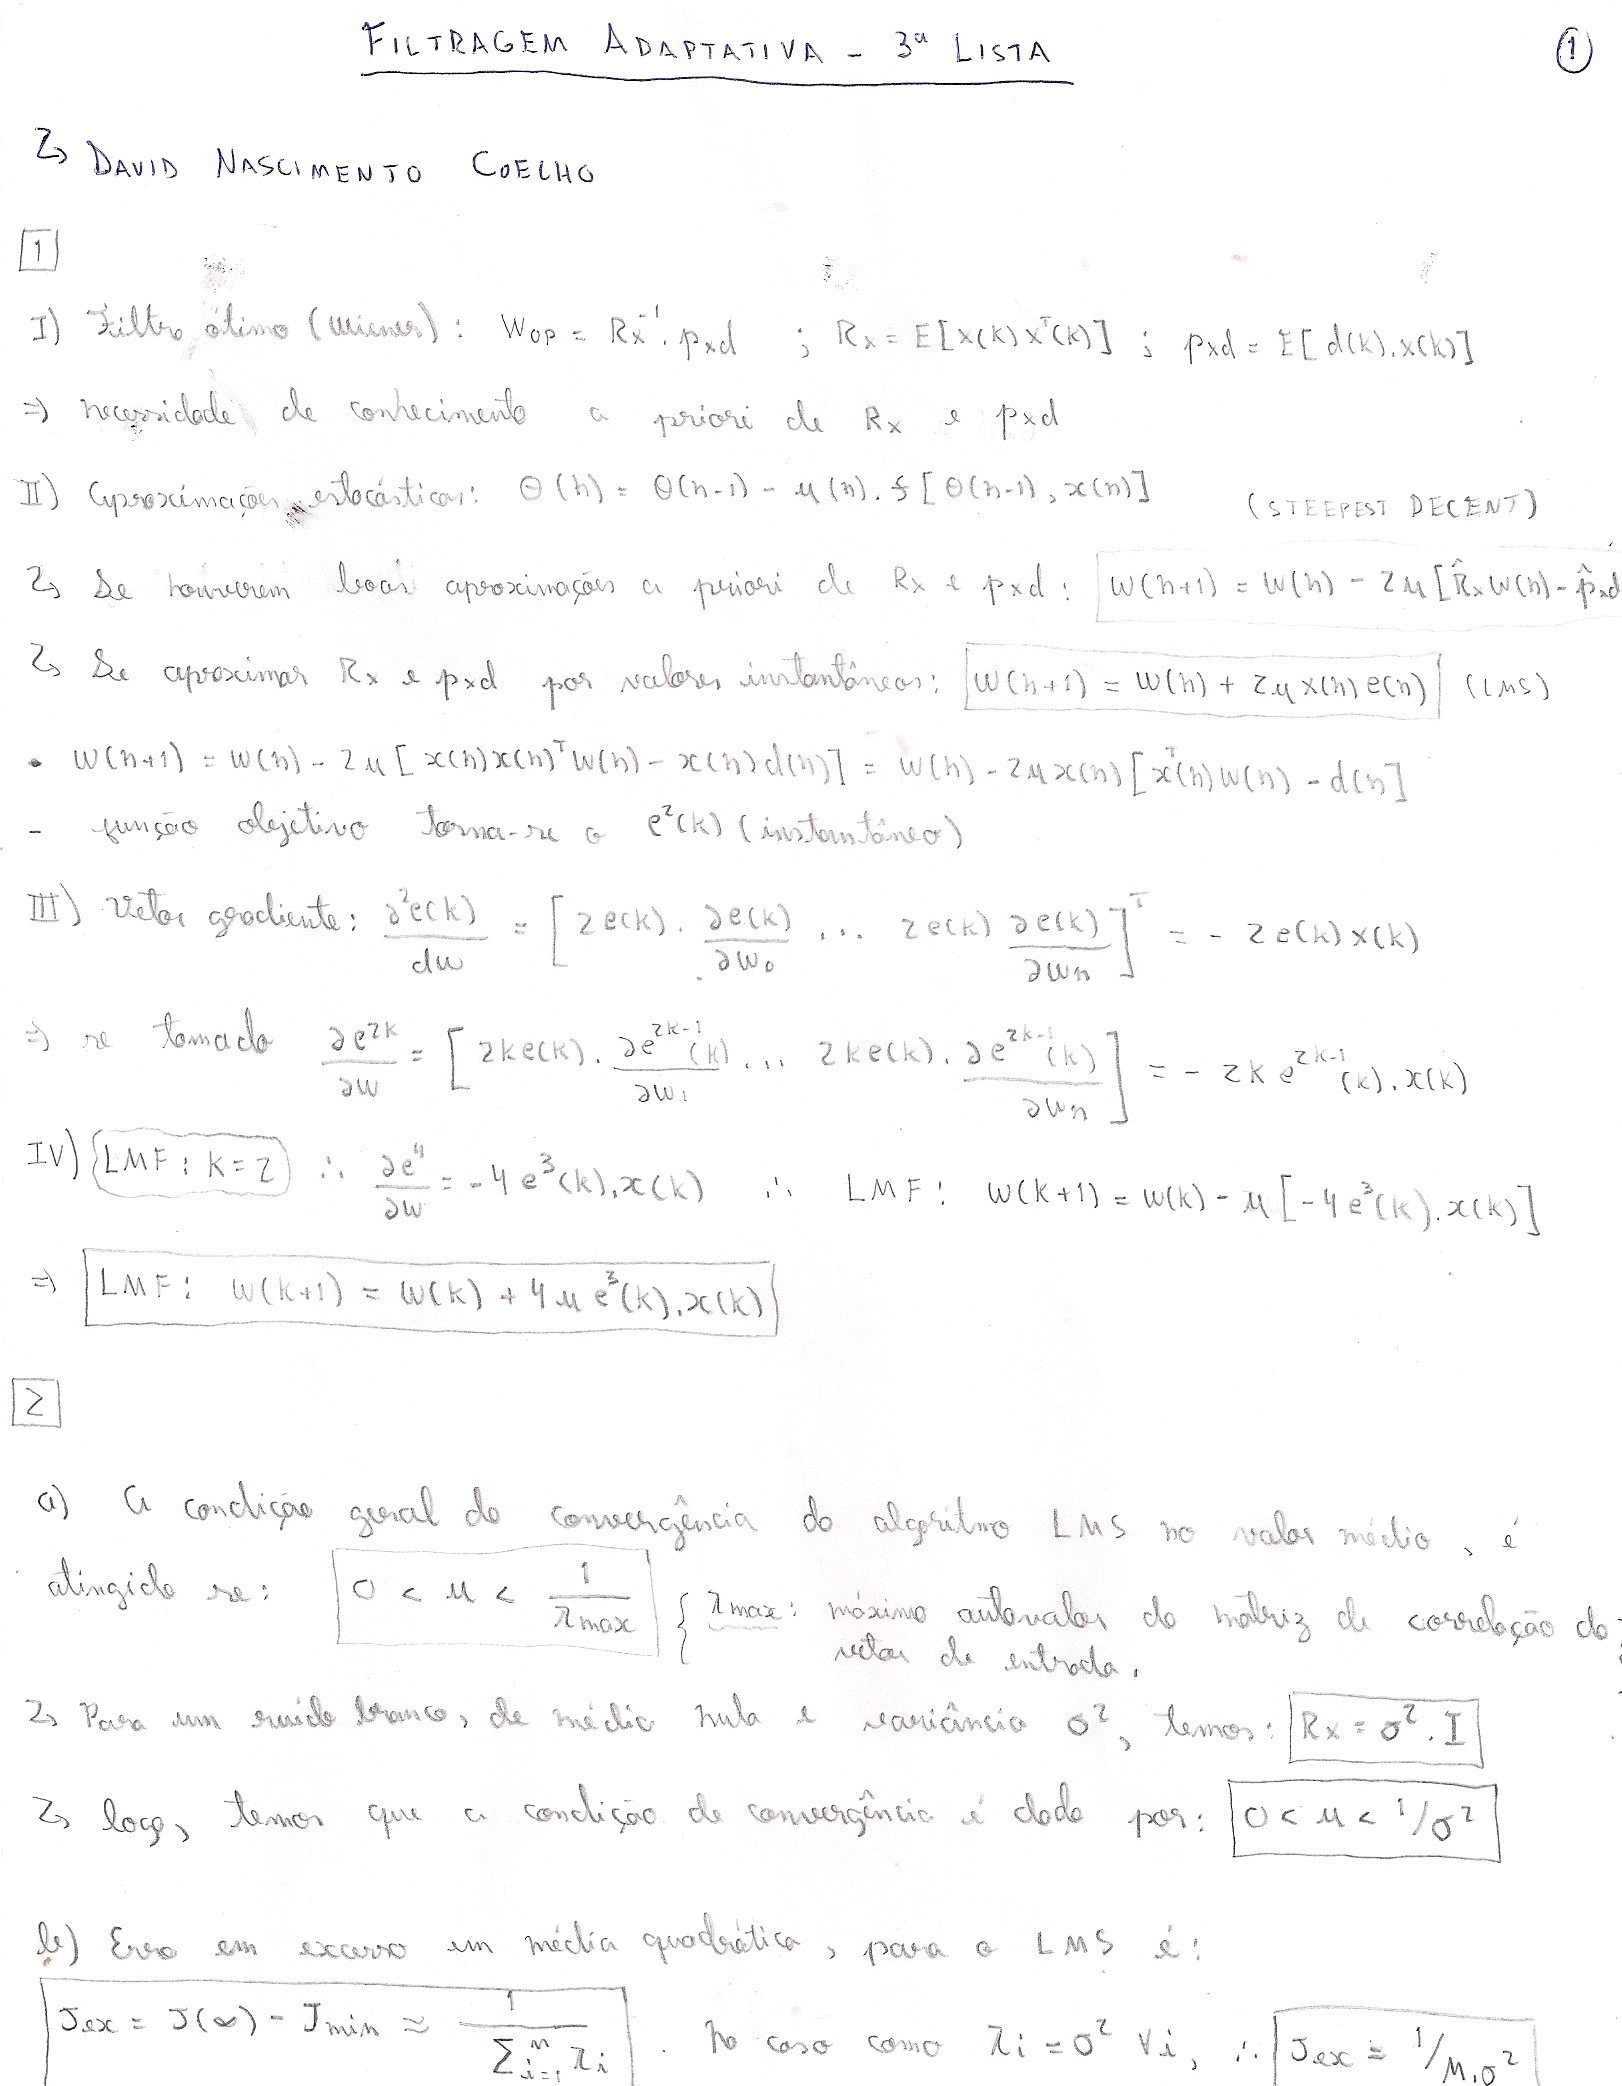 FILTRAGEM ADAPTATIVA - 3ª LISTA
①
↳ DAVID NASCIMENTO COELHO
1
I) Filtro ótimo (Wiener) : Wop = Rx⁻¹. pxd ; Rx = E[x(k) xᵀ(k)] ; pxd = E[d(k).x(k)]
⇒ necessidade de conhecimento a priori de Rx e pxd
II) Aproximações estocásticas: Θ(n) = Θ(n-1) - μ(n). f[Θ(n-1), x(n)] (STEEPEST DECENT)
↳ Se houverem boas aproximações a priori de Rx e pxd : W(n+1) = W(n) - 2μ[R̂x W(n) - p̂xd
↳ Se aproximar Rx e pxd por valores instantâneos: W(n+1) = W(n) + 2μ x(n) e(n) (LMS)
• W(n+1) = W(n) - 2μ[x(n)x(n)ᵀW(n) - x(n)d(n)] = W(n) - 2μx(n)[xᵀ(n)W(n) - d(n]
- função objetivo torna-se o e²(k) (instantâneo)
III) Vetor gradiente: ∂²e(k)/dw = [2e(k). ∂e(k)/∂w₀ ... 2e(k) ∂e(k)/∂wn]ᵀ = - 2e(k)x(k)
⇒ se tomado ∂e²ᵏ/∂w = [2ke(k). ∂e²ᵏ⁻¹(k)/∂w₁ ... 2ke(k). ∂e²ᵏ⁻¹(k)/∂wn] = - 2k e²ᵏ⁻¹(k).x(k)
IV) LMF: K=2 ∴ ∂e⁴/∂w = -4e³(k).x(k) ∴ LMF: W(k+1) = W(k) - μ[-4e³(k).x(k)]
⇒ LMF: W(k+1) = W(k) + 4μ e³(k).x(k)
2
a) A condição geral de convergência do algoritmo LMS no valor médio, é
atingido se: 0 < μ < 1/λmax { λmax: máximo autovalor da matriz de correlação do
vetor de entrada.
↳ Para um ruído branco, de média nula e variância σ², temos: Rx = σ².I
↳ logo, temos que a condição de convergência é dada por: 0 < μ < 1/σ²
b) Erro em excesso em média quadrática, para o LMS é:
Jex = J(∞) - Jmin ≈ 1/Σⁿᵢ₌₁ λi . No caso como λi = σ² ∀i, ∴ Jex = 1/M.σ²